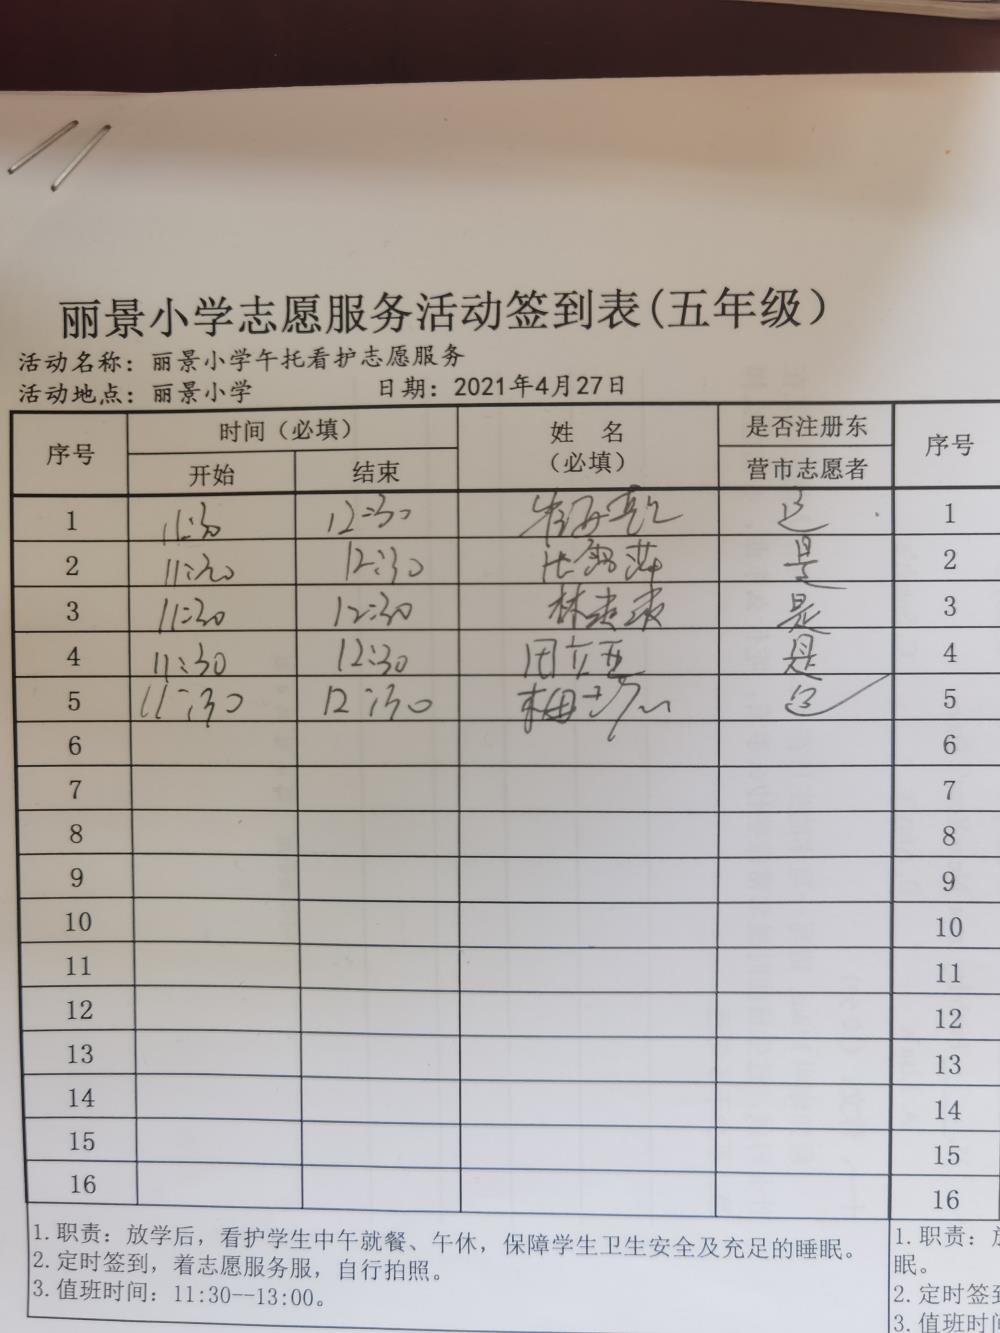 丽景小学志愿服务活动签到表(五年级）
活动名称：丽景小学午托看护志愿服务
活动地点：丽景小学 日期：2021年4月27日
序号 时间（必填） 姓 名 是否注册东 序号
开始 结束 （必填） 营市志愿者
1 11:30 12:30 是 1
2 11:30 12:30 是 2
3 11:30 12:30 林 是 3
4 11:30 12:30 是 4
5 11:30 12:30 梅 是 5
6 6
7 7
8 8
9 9
10 10
11 11
12 12
13 13
14 14
15 15
16 16
1.职责：放学后，看护学生中午就餐、午休，保障学生卫生安全及充足的睡眠。
2.定时签到，着志愿服务服，自行拍照。
3.值班时间：11:30--13:00。
1.职责：放
眠。
2.定时签到
3.值班时间